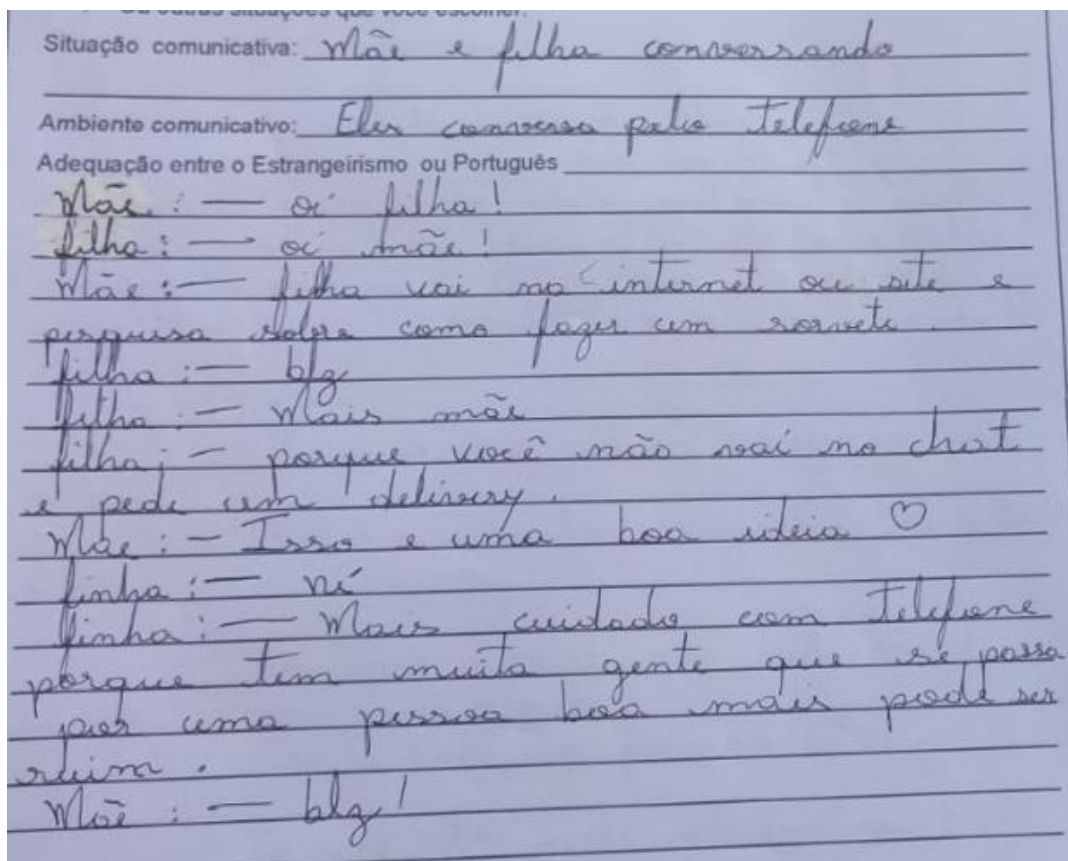 Ou outras situações que você escolher.
Situação comunicativa: Mãe e filha conversando
Ambiente comunicativo: Eles conversa pelo Telefone
Adequação entre o Estrangeirismo ou Português
Mãe : — oi filha!
filha : — oi mãe!
Mãe : — filha vai na internet ou site e
pesquisa sobre como fazer um sorvete.
filha : — blz
filha : — Mais mãe
filha : — porque você não vai no chat
e pede um delivery.
Mãe : — Isso e uma boa ideia ♡
finha : — né
finha : — Mais cuidado com Telefone
porque tem muita gente que se passa
por uma pessoa boa mais pode ser
ruim.
Mãe : — blz!